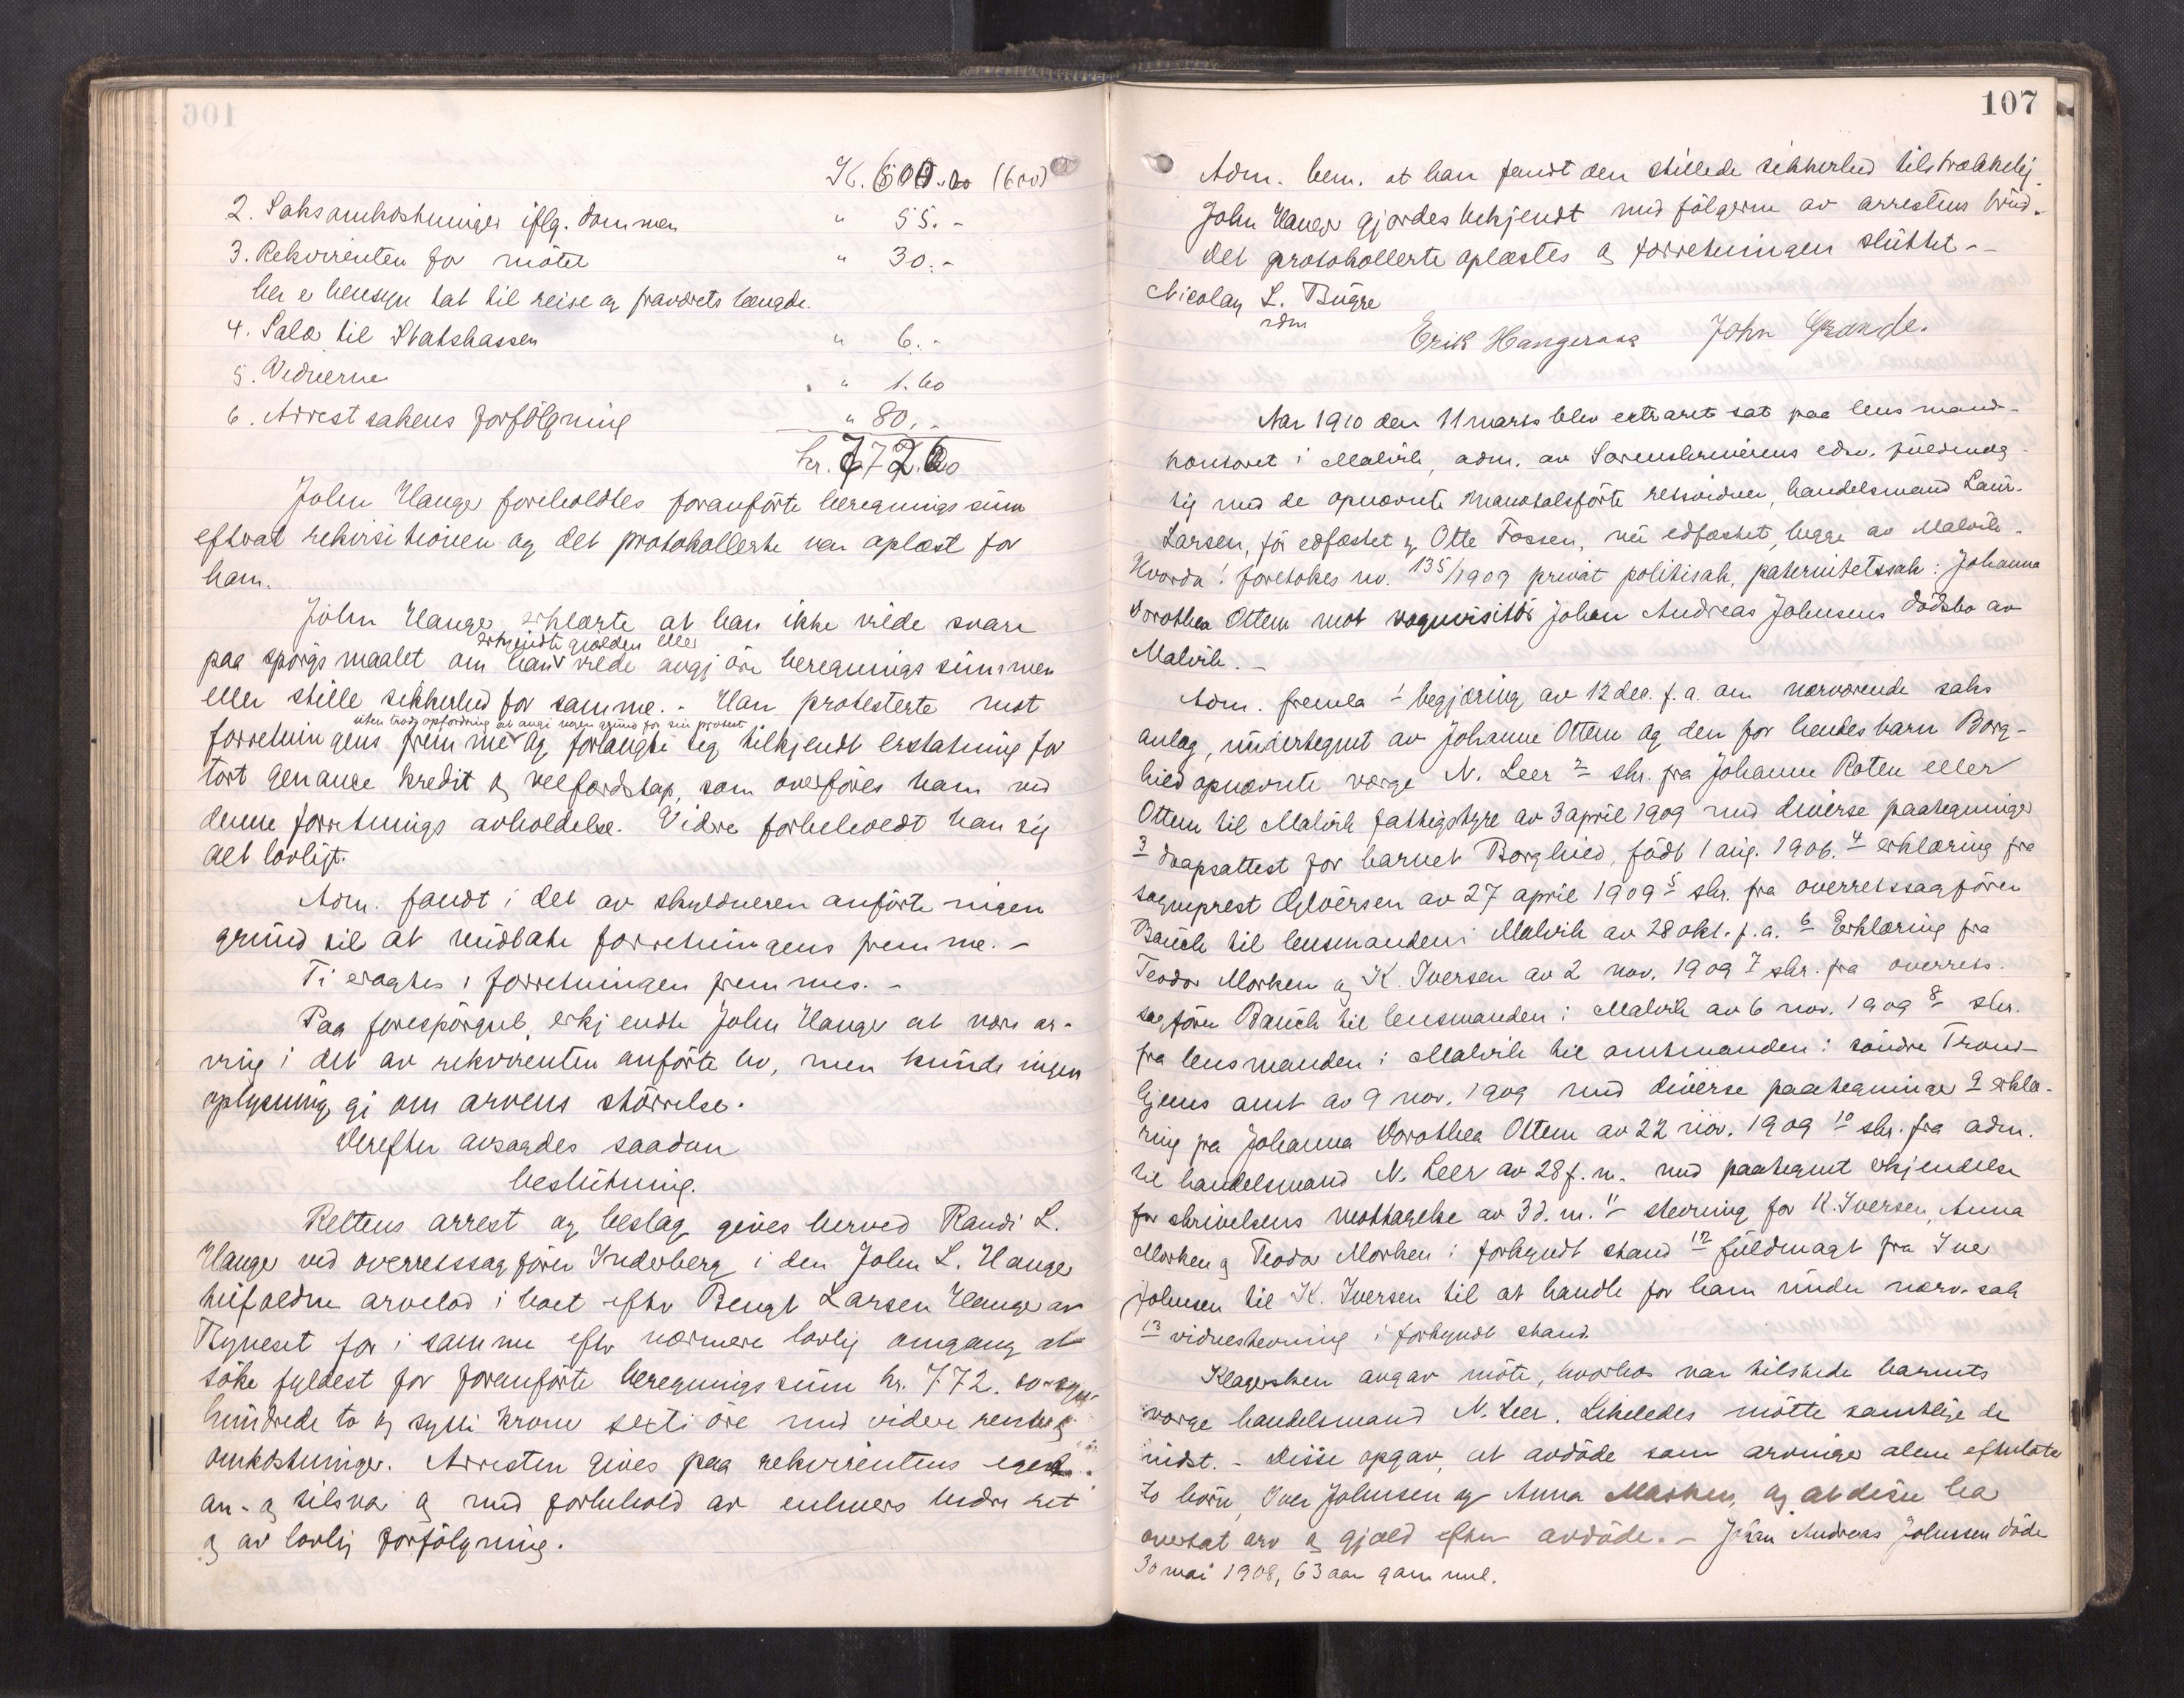 106
K. 600.00 (600)
2. Saksomkostninger iflg. dommen " 55.-
3. Rekvirenten for mötet " 30.-
her e hensyn tat til reise og fraværets længde.
4. Salæ til Statskassen " 6.-
5. Vidnerne " 1.60
6. Arrestsakens forfölgning " 80.-
kr. 772.60
John Hauger foreholdtes foranförte beregningssum
eftrat rekvisitionen og det protokollerte var oplæst for
ham.
John Hauger erklærte at han ikke vilde svare
erkjendte gjælden eller
paa spörgsmaalet om han vilde avgjöre beregningssummen
eller stille sikkerhed for samme. - Han protesterte mot
uten trods opfordring at angi nogen grund for sin protest
forretningens fremme og forlangte sig tilkjendt erstatning for
tort kredit og velfærdstap, som overföres ham ved
denne forretnings avholdelse. Videre forbeholdt han sig
alt lovligt.
Adm. fandt i det av skyldneren anförte ingen
grund til at undlate forretningens fremme. -
Ti eragtes: forretningen fremmes. -
Paa forespörgsel erkjendte John Hauger at være ar-
ving i det av rekvirenten anförte bo, men kunde ingen
oplysning gi om arvens störrelse.
Derefter avsagdes saadan
beslutning.
Rettens arrest og beslag gives herved Randi L.
Hauger ved overretssagförer Inderberg i den John L. Hauger
tilfaldne arvelod i boet efter Bengt Larsen Hauger av
Byneset for i samme eftr nærmere lovlig omgang at
söke fyldest for foranförte beregningssum kr. 772.60 - syv
hundrede to og sytti krone seksti öre med videre renter og
omkostninger. Arresten gives paa rekvirentens eget
an- og tilsvar og med forbehold av enhvers bedre ret
og av lovlig forfölgning.
107
Adm. bem. at han fandt den stillede sikkerhed tilstrækkelig.
John Hauger gjordes bekjendt med fölgerne av arrestens brud.
Det protokollerte oplæstes og forretningen sluttet. -
Nicolay L. Bugge
adm
Erik Haugeraas John Grande.
Aar 1910 den 11 marts blev extraret sat paa lensmand-
kontoret i Malvik, adm. av Sorenskriverens edsv. fuldmæg-
tig med de opnævnte mantalsförte retsvidner, handelsmand Laur.
Larsen, för edfæstet og Otte Fossen, nu edfæstet, begge av Malvik.
Hvorda! foretokes no. 135/1909 privat politisak, paternitetssak: Johanna
Dorothea Ottem mot Johan Andreas Johnsens dödsbo av
Malvik. -
Adm. fremla 1 begjæring av 12 dec. f.a. om nærværende saks
anlæg, undertegnet av Johanne Ottem og den for hendes barn Borg-
hild opnævnte værge N. Leer 2 skr. fra Johanne Roten eller
Ottem til Malvik fattigstyre av 3 april 1909 med diverse paategninger
3 daapsattest for barnet Borghild, födt 1 aug. 1906. 4 erklæring fra
sogneprest av 27 april 1909 5 skr. fra overretssagförer
Bauck til lensmanden i Malvik av 28 okt. f.a. 6 Erklæring fra
Teodor Morken og K. Iversen av 2 nov. 1909 7 skr. fra overrets-
sagförer Bauck til lensmanden i Malvik av 6 nov. 1909 8 skr.
fra lensmanden i Malvik til amtmanden i söndre Trond-
hjems amt av 9 nov. 1909 med diverse paategninger 9 erklæ-
ring fra Johanna Dorothea Ottem av 22 nov. 1909 10 skr. fra adm.
til handelsmand N. Leer av 28 f.m. med paategnet erkjendelse
for skrivelsens mottagelse av 3 d.m. 11 stevning for K. Iversen, Anna
Morken og Teodor Morken i forkyndt stand 12 fuldmagt fra Iver
Johnsen til K. Iversen til at handle for ham under nærv. sak
13 vidnestevning i forkyndt stand.
Klagersken avgav möte, hvorhos var tilstede barnets
værge handelsmand N. Leer. Likeledes mötte samtlige de
indst. - Disse opgav, at avdöde som arvinger alene efterlate
to börn, Iver Johnsen og Anna Morken, og at disse ha
overtat arv og gjæld efter avdöde. - Johan Andreas Johnsen döde
30 mai 1908, 63 aar gammel.